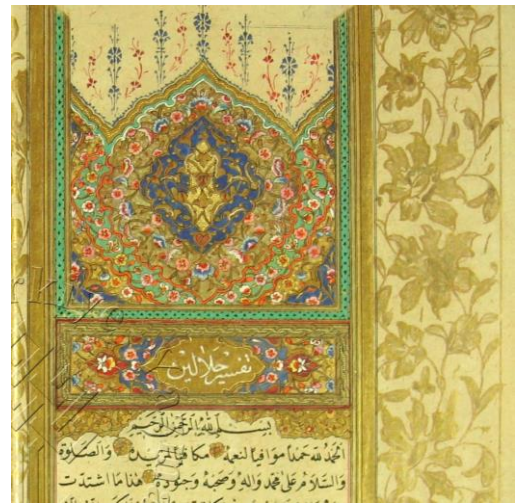 تفسير جلالين
بسم الله الرحمن الرحيم
الحمد لله حمدا موافيا لنعمه مكافيا لمزيده والصلوة
والسلام على محمد واله وصحبه وجنوده هذا ما اشتدت